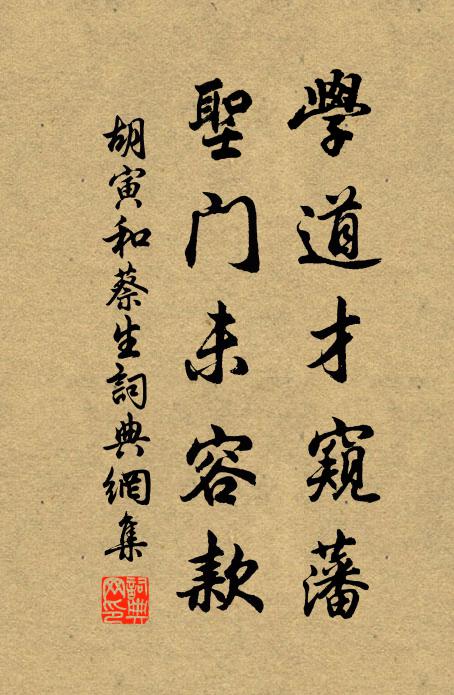 學道才窺藩
聖门未容款
胡寅和蔡生詞典網集
詞典网印